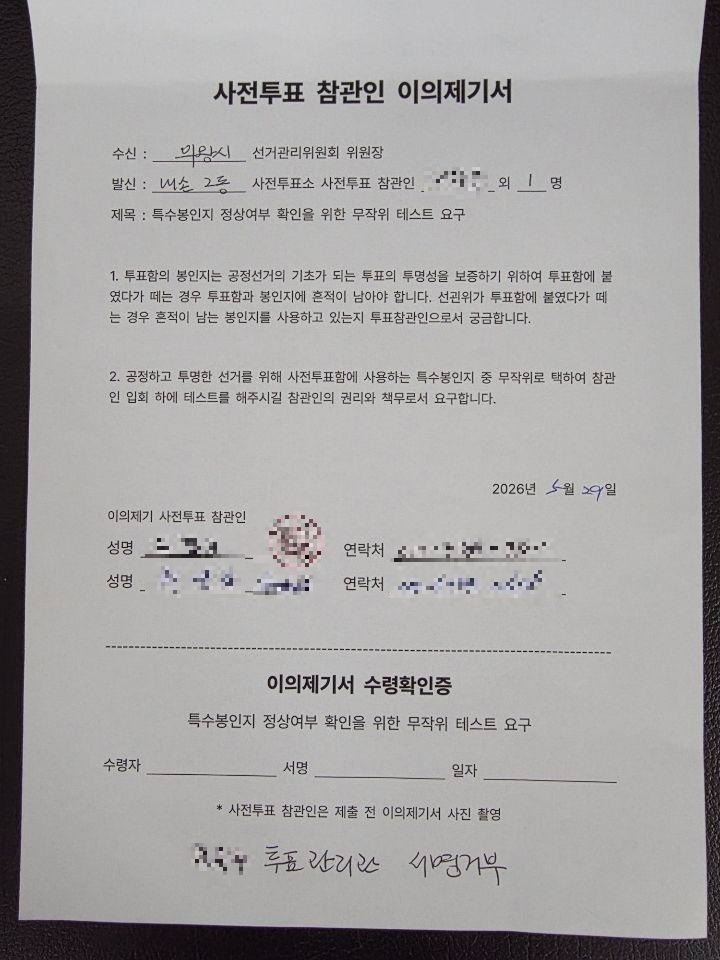 사전투표 참관인 이의제기서
수신 : 의왕시 선거관리위원회 위원장
발신 : 내손 2동 사전투표소 사전투표 참관인 외 1 명
제목 : 특수봉인지 정상여부 확인을 위한 무작위 테스트 요구
1. 투표함의 봉인지는 공정선거의 기초가 되는 투표의 투명성을 보증하기 위하여 투표함에 붙
였다가 떼는 경우 투표함과 봉인지에 흔적이 남아야 합니다. 선관위가 투표함에 붙였다가 떼
는 경우 흔적이 남는 봉인지를 사용하고 있는지 투표참관인으로서 궁금합니다.
2. 공정하고 투명한 선거를 위해 사전투표함에 사용하는 특수봉인지 중 무작위로 택하여 참관
인 입회 하에 테스트를 해주시길 참관인의 권리와 책무로서 요구합니다.
2026년 5월 29일
이의제기 사전투표 참관인
성명 연락처
성명 연락처
이의제기서 수령확인증
특수봉인지 정상여부 확인을 위한 무작위 테스트 요구
수령자 서명 일자
* 사전투표 참관인은 제출 전 이의제기서 사진 촬영
투표관리관 서명거부